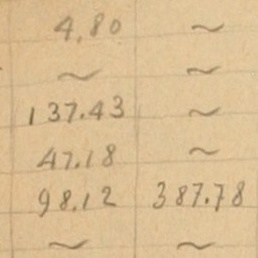 4.80 ~
~ ~
137.43 ~
47.18 ~
98.12 387.78
~ ~